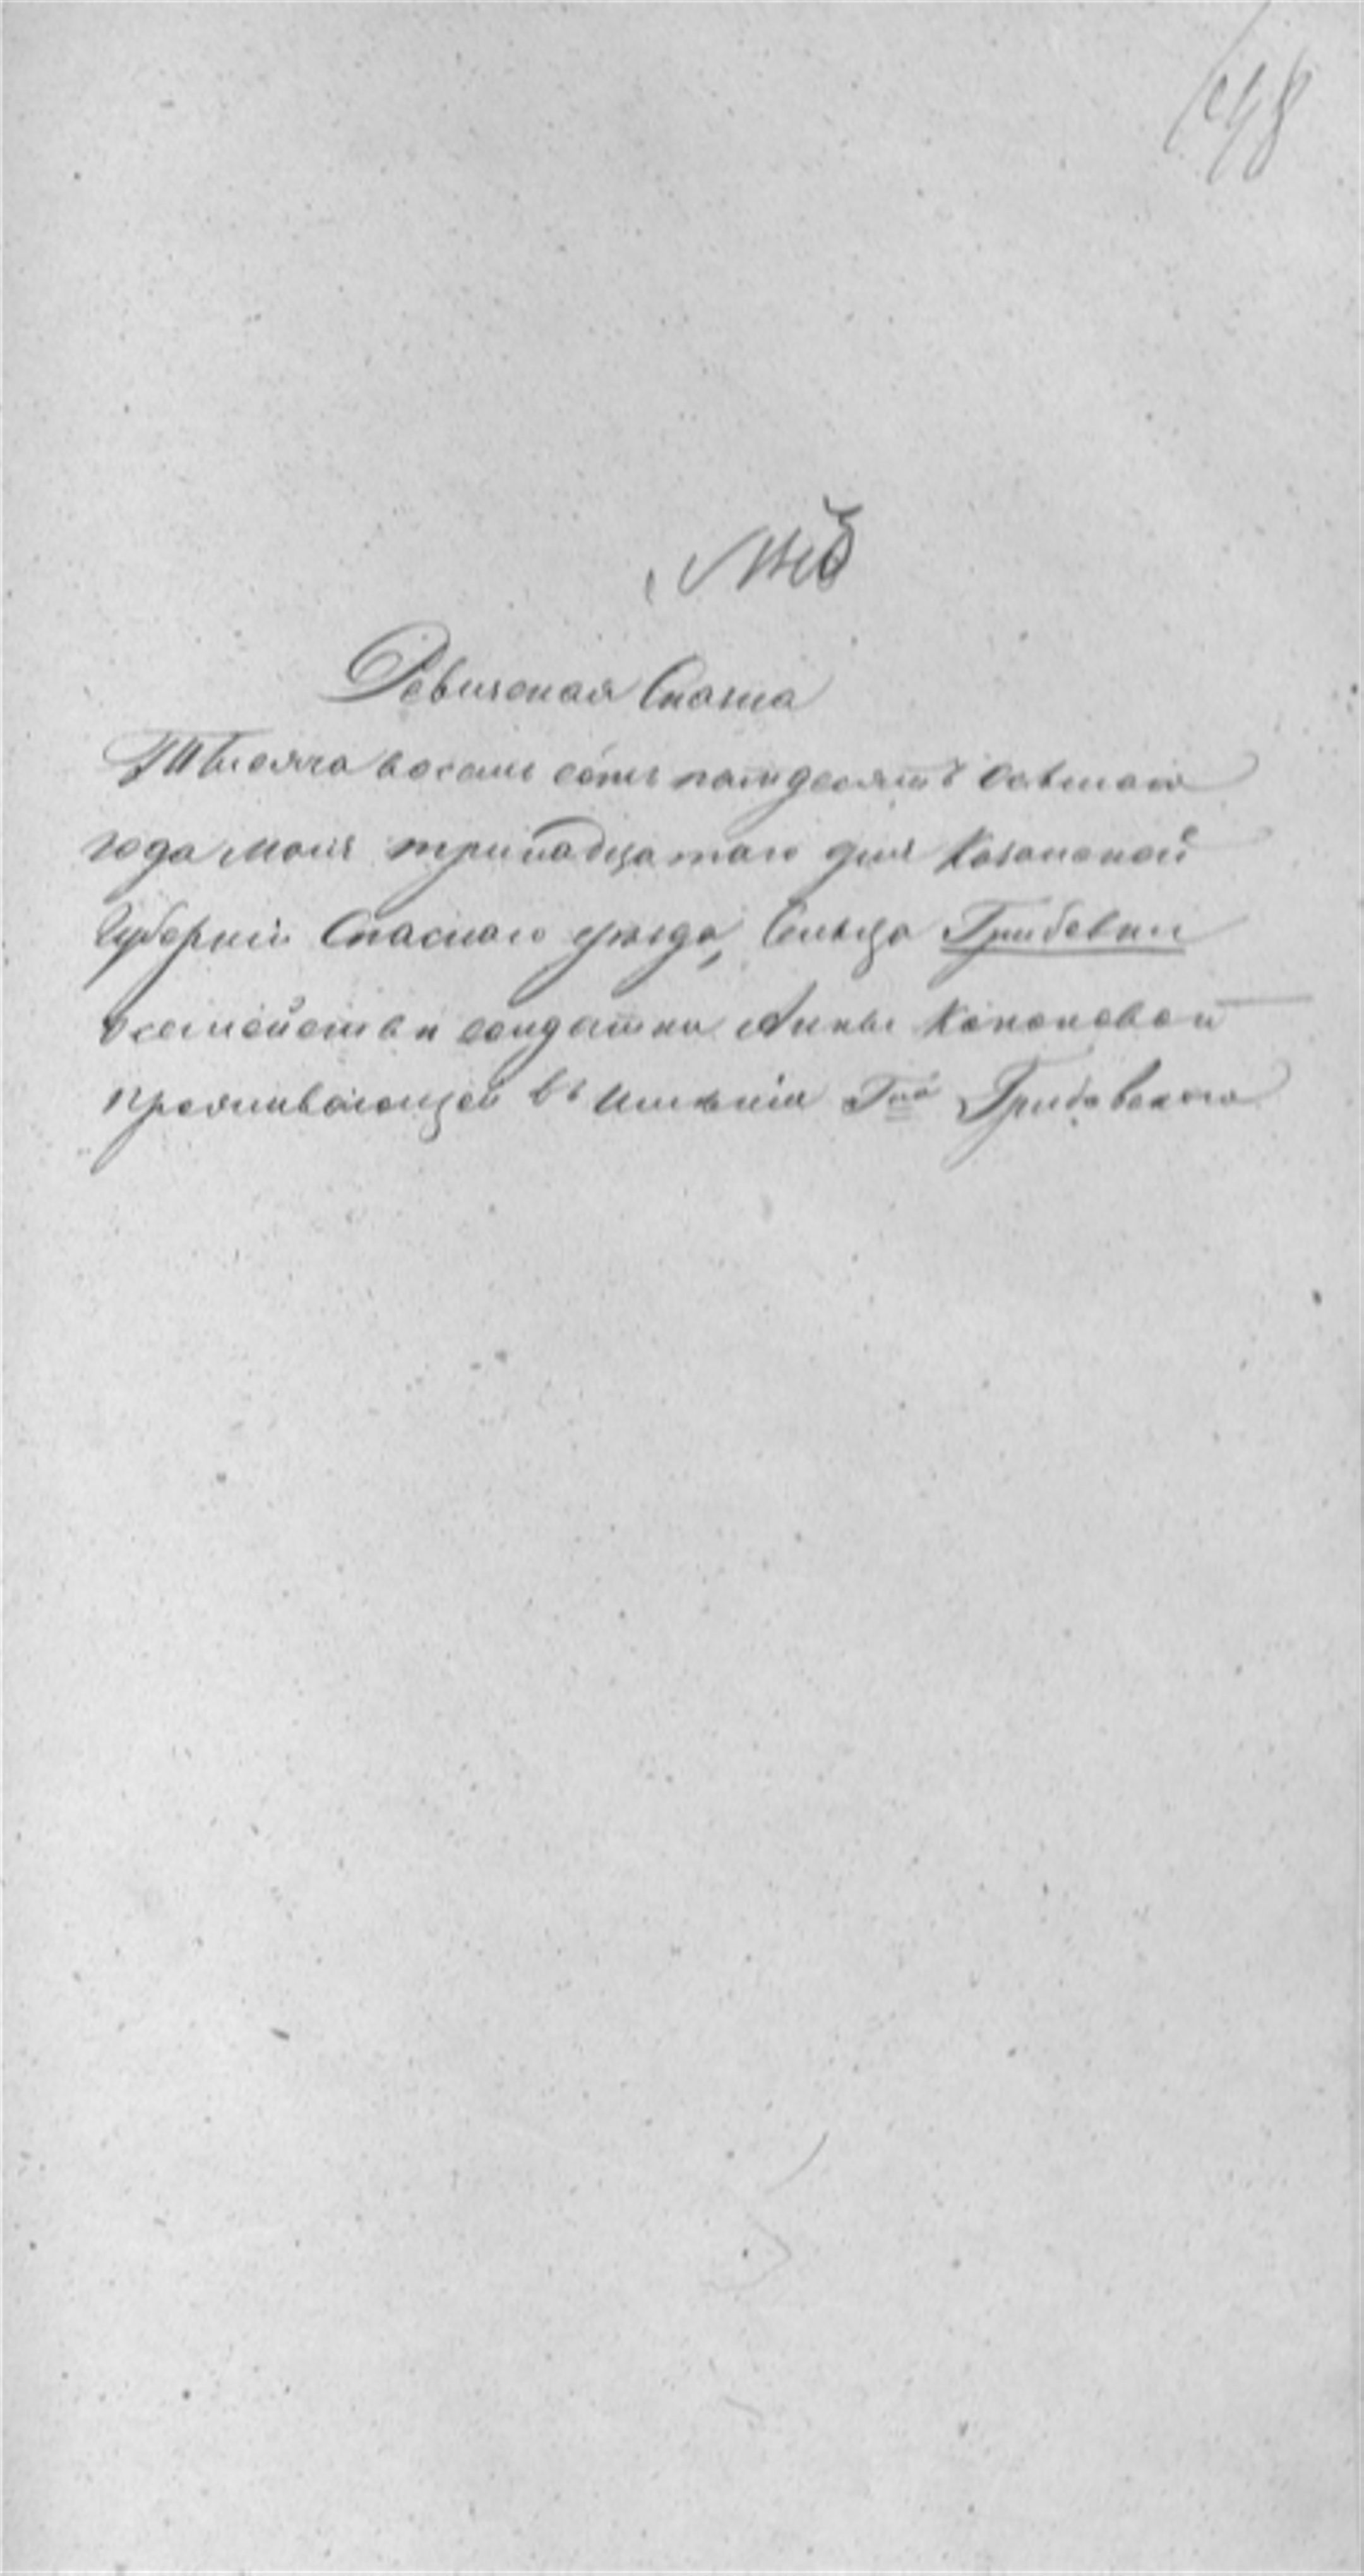 148
Ревизская Сказка
Тысяча восемь сотъ пятдесятъ осьмаго
года Маія тринадцатаго дня Казанской
Губерніи Спаскаго уѣзда, Сельца Грибовки
о семействѣ солдатки Анны Кононовой
проживающей въ имѣніи Гна Грибовскаго